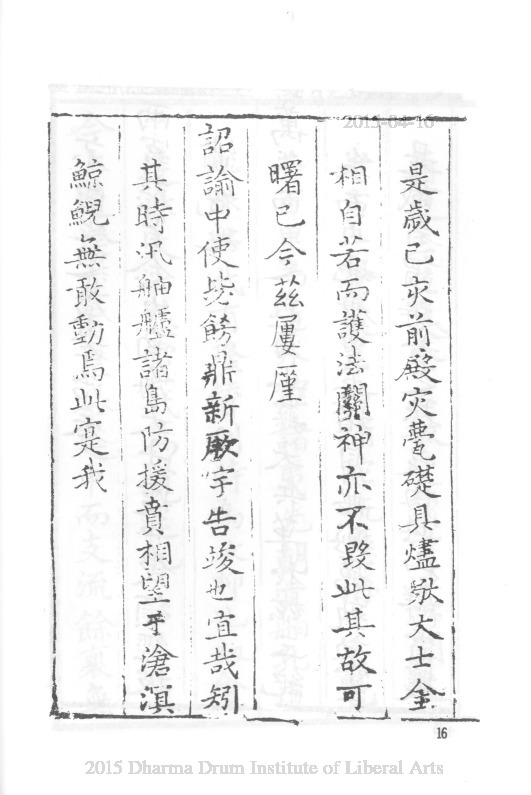 2015-04-16
是歲已亥前殿灾甍礎具燼獨大士金
相自若而護法關神亦不毀此其故可
曙已今兹屢厪
詔諭中使毖飭鼎新厥宇告竣也宜哉矧
其時汛舳艫諸島防援賁相望于滄溟
鯨鯢無敢動焉此寔我
16
2015 Dharma Drum Institute of Liberal Arts